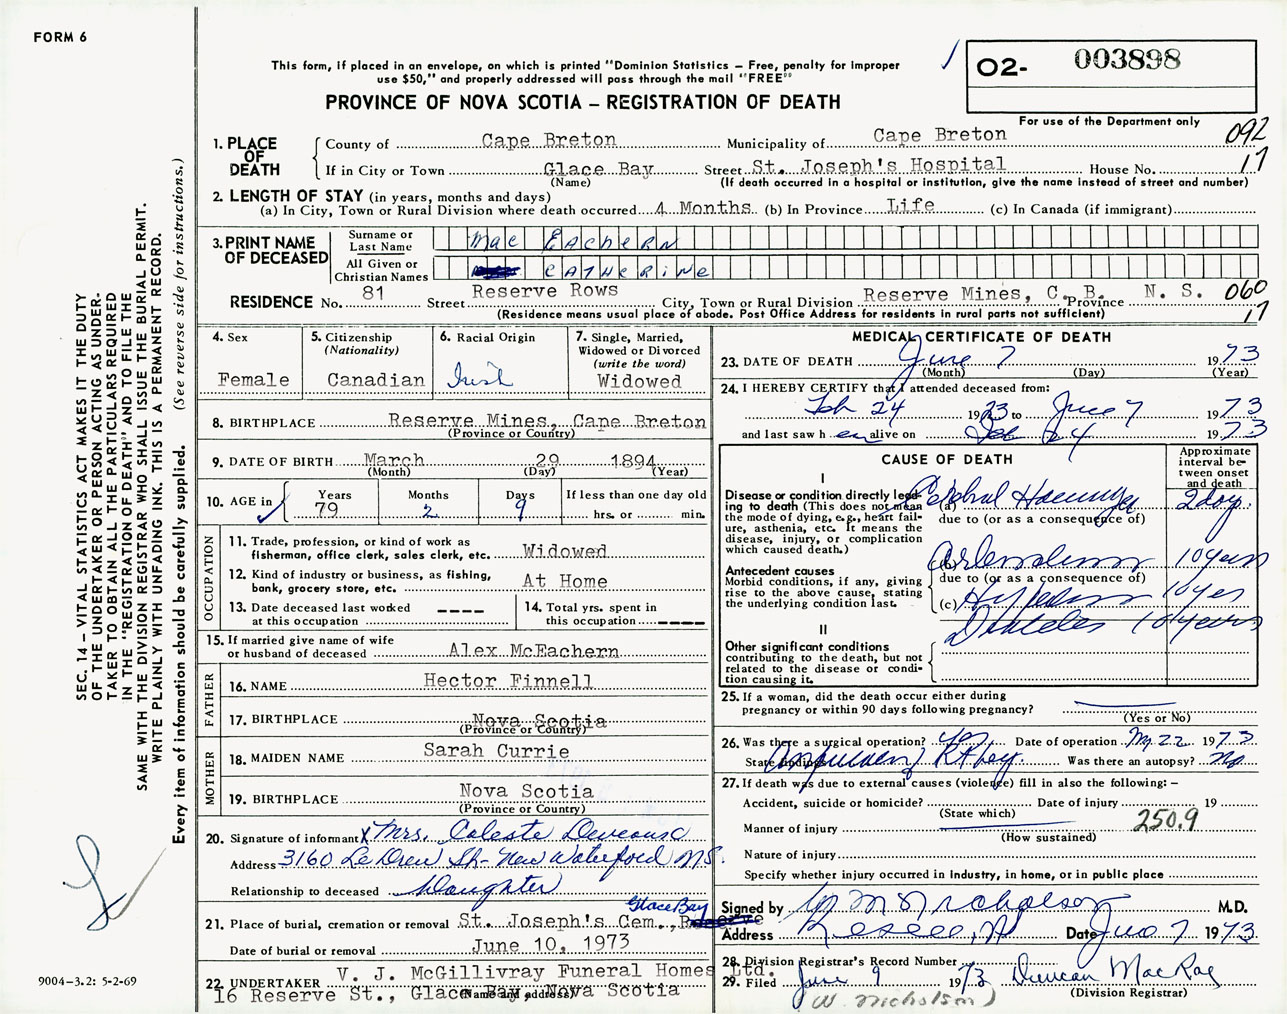 FORM 6
This form, if placed in an envelope, on which is printed "Dominion Statistics – Free, penalty for improper
use $50," and properly addressed will pass through the mail "FREE"
O2- 003898
PROVINCE OF NOVA SCOTIA – REGISTRATION OF DEATH
For use of the Department only
1. PLACE OF DEATH
County of Cape Breton Municipality of Cape Breton 092
If in City or Town Glace Bay Street St. Joseph's Hospital House No. 17
(Name) (If death occurred in a hospital or institution, give the name instead of street and number)
2. LENGTH OF STAY (in years, months and days)
(a) In City, Town or Rural Division where death occurred 4 Months (b) In Province Life (c) In Canada (if immigrant)
3. PRINT NAME OF DECEASED
Surname or Last Name Mac Eachern
All Given or Christian Names CATHERINE
RESIDENCE No. 81 Street Reserve Rows City, Town or Rural Division Reserve Mines, C. B. Province N. S. 060
(Residence means usual place of abode. Post Office Address for residents in rural parts not sufficient) 17
4. Sex
Female
5. Citizenship
(Nationality)
Canadian
6. Racial Origin
Irish
7. Single, Married,
Widowed or Divorced
(write the word)
Widowed
8. BIRTHPLACE Reserve Mines, Cape Breton
(Province or Country)
9. DATE OF BIRTH March 29 1894
(Month) (Day) (Year)
10. AGE in
Years 79
Months 2
Days 9
If less than one day old
hrs. or min.
OCCUPATION
11. Trade, profession, or kind of work as
fisherman, office clerk, sales clerk, etc. Widowed
12. Kind of industry or business, as fishing,
bank, grocery store, etc. At Home
13. Date deceased last worked
at this occupation ----
14. Total yrs. spent in
this occupation ----
15. If married give name of wife
or husband of deceased Alex McEachern
FATHER
16. NAME Hector Finnell
17. BIRTHPLACE Nova Scotia
(Province or Country)
MOTHER
18. MAIDEN NAME Sarah Currie
19. BIRTHPLACE Nova Scotia
(Province or Country)
20. Signature of informant X Mrs. Celeste
Address 3160 St- New Waterford N.S.
Relationship to deceased Daughter
Glace Bay
21. Place of burial, cremation or removal St. Joseph's Cem., Reserve
Date of burial or removal June 10, 1973
22. UNDERTAKER V. J. McGillivray Funeral Homes Ltd.
16 Reserve St., Glace Bay, Nova Scotia
(Name and address)
MEDICAL CERTIFICATE OF DEATH
23. DATE OF DEATH June 7 1973
(Month) (Day) (Year)
24. I HEREBY CERTIFY that I attended deceased from:
Feb 24 1973 to June 7 1973
and last saw her alive on 24 1973
CAUSE OF DEATH
Approximate
interval be-
tween onset
and death
I
Disease or condition directly lead-
ing to death (This does not mean
the mode of dying, e.g., heart fail-
ure, asthenia, etc. It means the
disease, injury, or complication
which caused death.)
(a) Cerebral 2 days
due to (or as a consequence of)
Antecedent causes
Morbid conditions, if any, giving
rise to the above cause, stating
the underlying condition last.
(b) 10 years
due to (or as a consequence of)
(c) 10 yes
Diabetes 10 years
II
Other significant conditions
contributing to the death, but not
related to the disease or condi-
tion causing it.
25. If a woman, did the death occur either during
pregnancy or within 90 days following pregnancy?
(Yes or No)
26. Was there a surgical operation? yes Date of operation 22 1973
State findings Amputation Was there an autopsy? No
27. If death was due to external causes (violence) fill in also the following: –
Accident, suicide or homicide? Date of injury 19
(State which)
Manner of injury 250.9
(How sustained)
Nature of injury
Specify whether injury occurred in industry, in home, or in public place
Signed by Nicholson M.D.
Address Reserve, NS Date June 7 1973
28. Division Registrar's Record Number
29. Filed June 9 1973 Duncan MacRae
(Division Registrar)
(W. Nicholson)
SEC. 14 – VITAL STATISTICS ACT MAKES IT THE DUTY
OF THE UNDERTAKER OR PERSON ACTING AS UNDER-
TAKER TO OBTAIN ALL THE PARTICULARS REQUIRED
IN THE "REGISTRATION OF DEATH" AND TO FILE THE
SAME WITH THE DIVISION REGISTRAR WHO SHALL ISSUE THE BURIAL PERMIT.
WRITE PLAINLY WITH UNFADING INK. THIS IS A PERMANENT RECORD.
Every item of information should be carefully supplied. (See reverse side for instructions.)
9004-3.2: 5-2-69